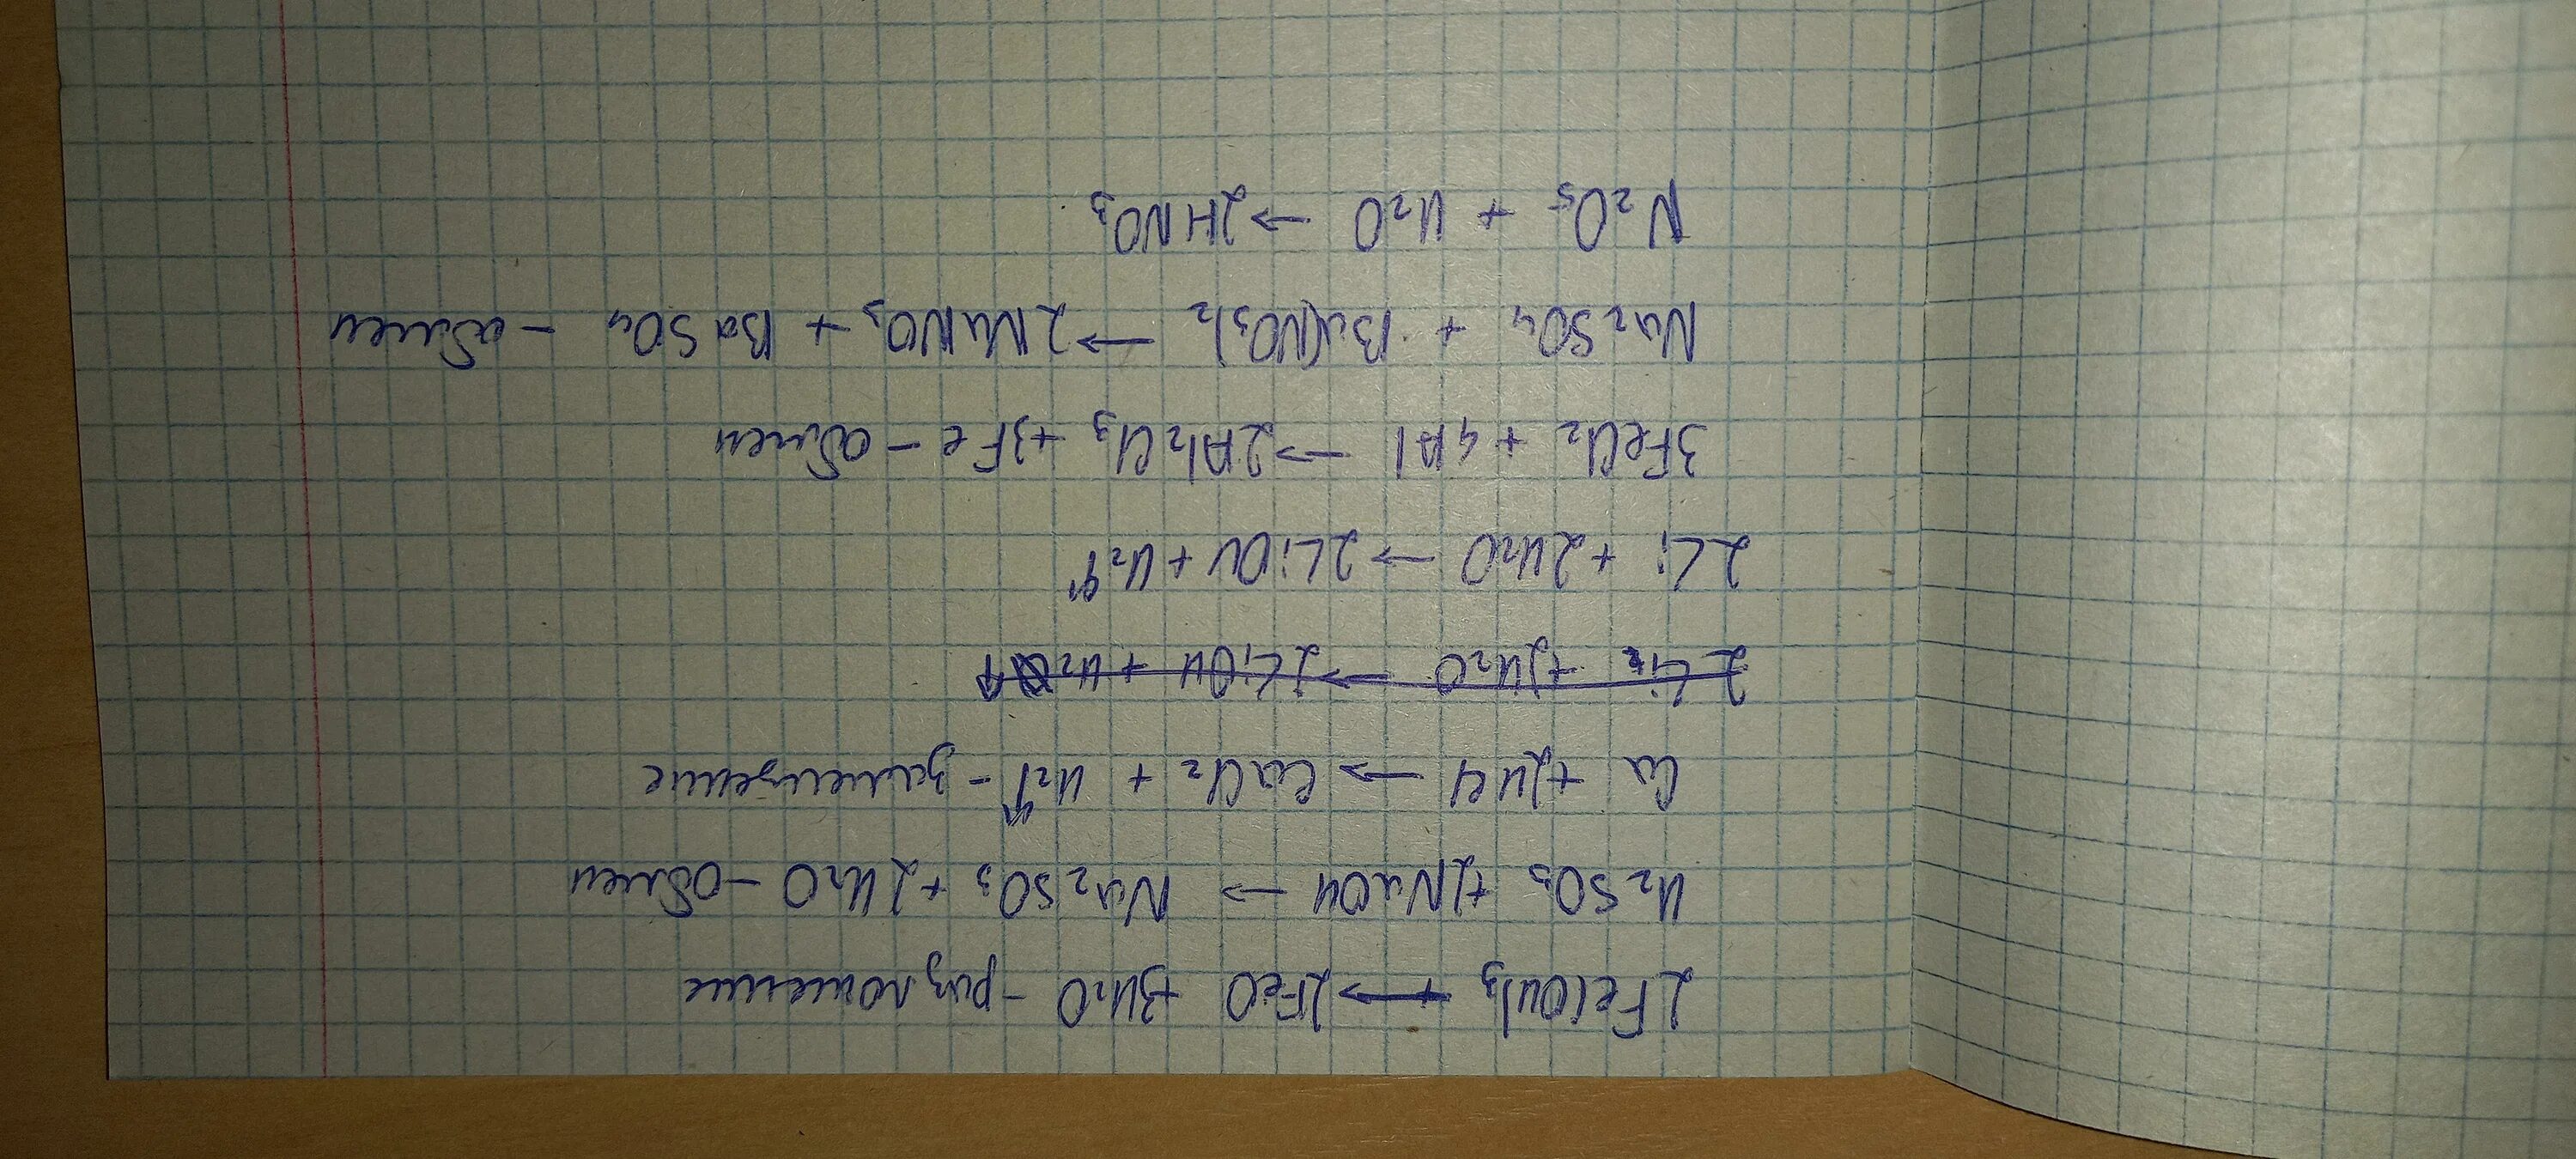 2Fe(OH)₃ → 2FeO + 3H₂O - разложение
H₂SO₃ + 2NaOH → Na₂SO₃ + 2H₂O - обмен
Ca + 2HCl → CaCl₂ + H₂↑ - замещение
2Li₂ + 2H₂O → 2LiOH + H₂↑
2Li + 2H₂O → 2LiOH + H₂↑
3FeCl₂ + 4Al → 2Al₂Cl₃ + 3Fe - обмен
Na₂SO₄ + Ba(NO₃)₂ → 2NaNO₃ + BaSO₄ - обмен
N₂O₅ + H₂O → 2HNO₃